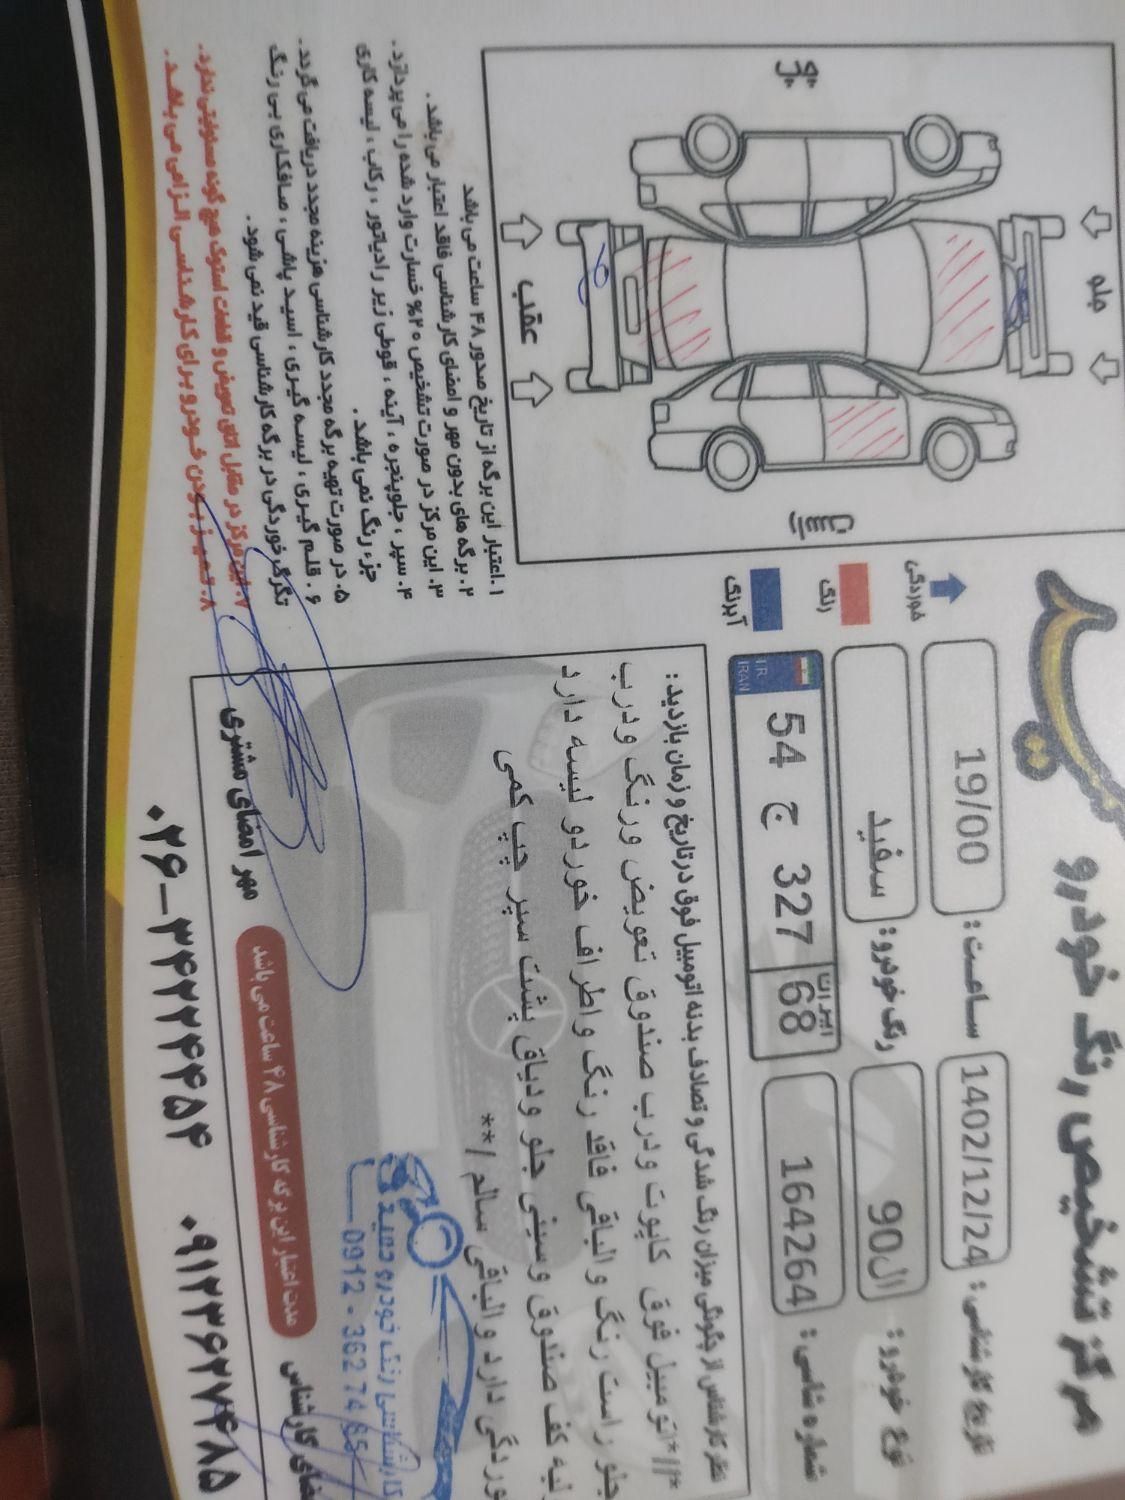 مرکز تشخیص رنگ خودرو
تاریخ کارشناسی: 1402/12/24
ساعت: 19/00
نوع خودرو: ال90
رنگ خودرو: سفید
شماره شاسی: 164264
I.R. IRAN
54 ج 327
ایران 68
خوردگی
رنگ
آبرنگ
جلو
عقب
چپ
راست
نظر کارشناس از چگونگی میزان رنگ شدگی و تصادف بدنه اتومبیل فوق در تاریخ و زمان بازدید:
*//*اتومبیل فوق کاپوت ودرب صندوق تعویض ورنگ ودرب
جلو راست رنگ والباقی فاقد رنگ واطراف خوردو لیسه دارد
لبه کف صندوق وسینی جلو ودیاق پشت سپر چپ کمی
خوردگی دارد والباقی سالم /**
۱. اعتبار این برگه از تاریخ صدور ۴۸ ساعت می باشد
۲. برگه های بدون مهر و امضای کارشناسی فاقد اعتبار می باشد.
۳. این مرکز در صورت تشخیص ۲۰% خسارت وارد شده را می پردازد.
۴. سپر، جلوپنجره، آینه، قوطی زیر رادیاتور، رکاب، لیسه کاری
جزء رنگ نمی باشد.
۵. در صورت تهیه برگه مجدد کارشناسی هزینه مجدد دریافت می گردد.
۶. قلم گیری، لیسه گیری، اسید پاشی، صافکاری بی رنگ
تگرگ خوردگی در برگه کارشناسی قید نمی شود.
۷. این مرکز در مقابل اتاق تعویض و قطعات استوک هیچ گونه مسئولیتی ندارد.
۸. تمیز بودن خودرو برای کارشناسی الزامی می باشد.
کارشناسی رنگ خودرو حمید
0912 - 362 74 85
امضای کارشناس
مدت اعتبار این برگه کارشناسی ۴۸ ساعت می باشد
مهر امضای مشتری
۰۲۶-۳۴۲۲۴۴۵۴
۰۹۱۲۳۶۲۷۴۸۵